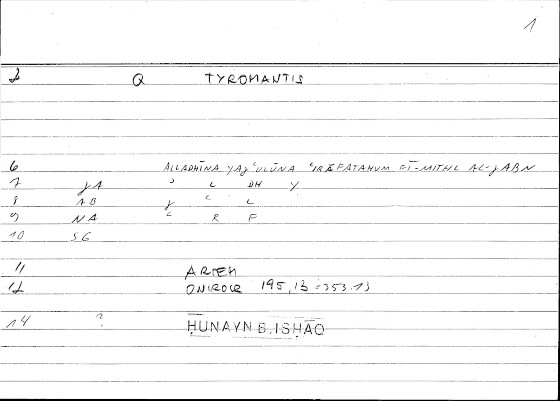 1
2 Q TYROMANTIS
6 ALLADHĪNA YAǧʿULŪNA ʿIRĀFATAHUM FĪ-MITHL AL-ǧABN
7 ǧA ʾ L DH Y
8 AB ǧ ʿ L
9 NA ʿ R F
10 SG
11 ARTEM
12 ONIROCR 195,13 = 353.13
14 ? ḤUNAYN B. ISḤĀQ